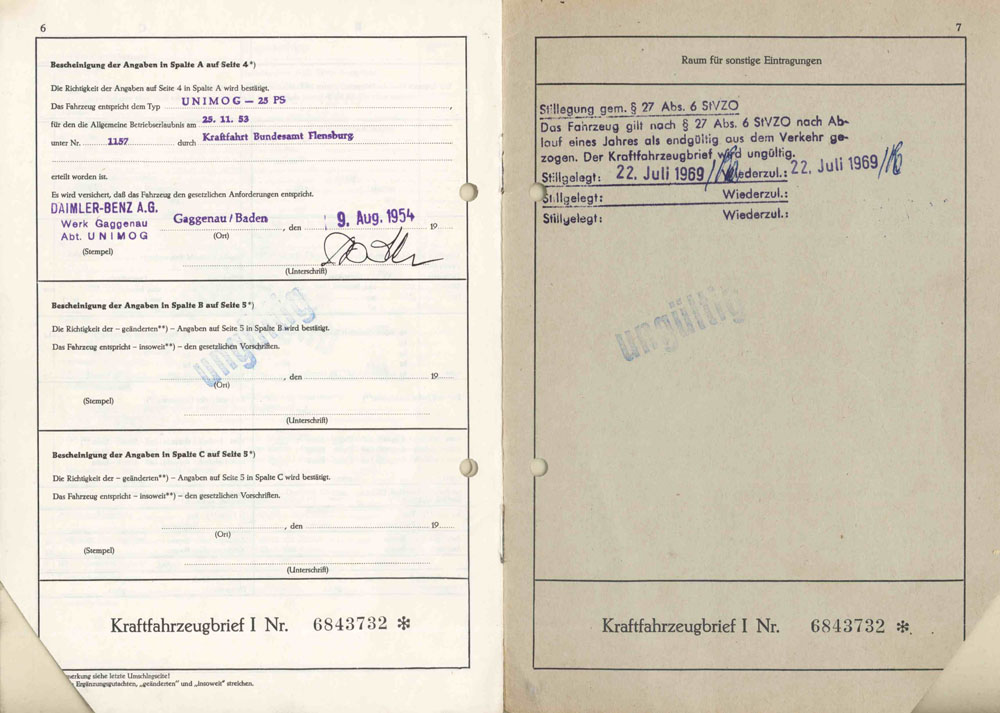 6
Bescheinigung der Angaben in Spalte A auf Seite 4*)
Die Richtigkeit der Angaben auf Seite 4 in Spalte A wird bestätigt.
Das Fahrzeug entspricht dem Typ UNIMOG – 25 PS ,
für den die Allgemeine Betriebserlaubnis am 25. 11. 53
unter Nr. 1157 durch Kraftfahrt Bundesamt Flensburg
erteilt worden ist.
Es wird versichert, daß das Fahrzeug den gesetzlichen Anforderungen entspricht.
DAIMLER-BENZ A.G.
Werk Gaggenau
Abt. UNIMOG
Gaggenau/Baden , den 9. Aug. 1954 19
(Ort)
(Stempel)
(Unterschrift)
Bescheinigung der Angaben in Spalte B auf Seite 5*)
Die Richtigkeit der – geänderten**) – Angaben auf Seite 5 in Spalte B wird bestätigt.
Das Fahrzeug entspricht – insoweit**) – den gesetzlichen Vorschriften.
ungültig
, den 19
(Ort)
(Stempel)
(Unterschrift)
Bescheinigung der Angaben in Spalte C auf Seite 5*)
Die Richtigkeit der – geänderten**) – Angaben auf Seite 5 in Spalte C wird bestätigt.
Das Fahrzeug entspricht – insoweit**) – den gesetzlichen Vorschriften.
, den 19
(Ort)
(Stempel)
(Unterschrift)
Kraftfahrzeugbrief I Nr. 6843732 *
siehe letzte Umschlagseite!
Ergänzungsgutachten, „geänderten" und „insoweit" streichen.
7
Raum für sonstige Eintragungen
Stillegung gem. § 27 Abs. 6 StVZO
Das Fahrzeug gilt nach § 27 Abs. 6 StVZO nach Ab-
lauf eines Jahres als endgültig aus dem Verkehr ge-
zogen. Der Kraftfahrzeugbrief wird ungültig.
Stillgelegt: 22. Juli 1969 Wiederzul.: 22. Juli 1969
Stillgelegt: Wiederzul.:
Stillgelegt: Wiederzul.:
ungültig
Kraftfahrzeugbrief I Nr. 6843732 *